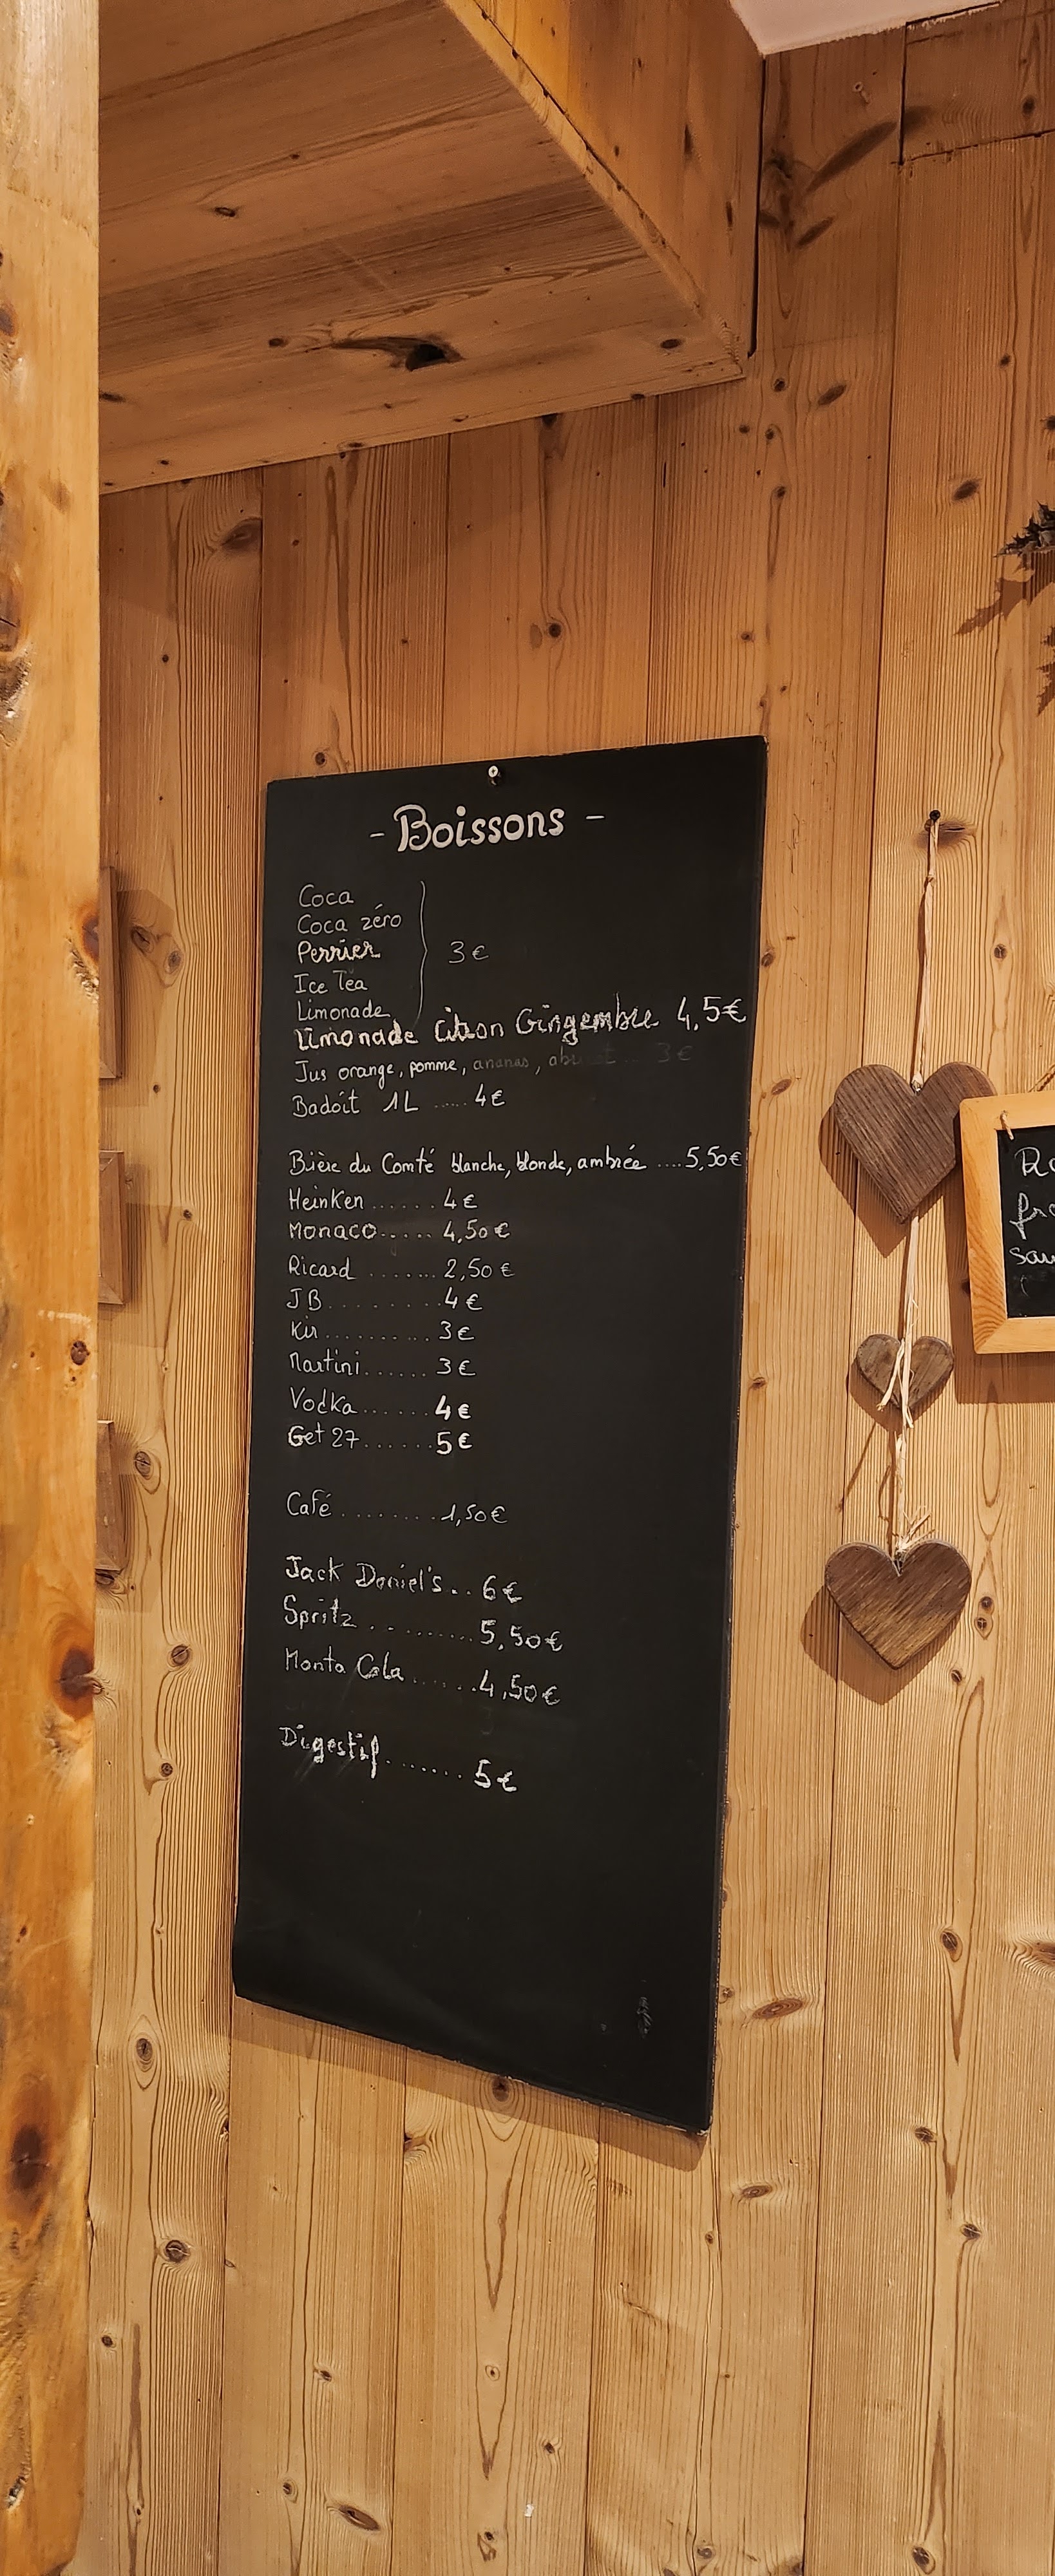 - Boissons -
Coca
Coca zéro
Perrier
Ice Tea
Limonade
3€
Limonade Citron Gingembre 4,5€
Jus orange, pomme, ananas, ... 3€
Badoit 1L ..... 4€
Bière du Comté blanche, blonde, ambrée ....5,50€
Heinken ...... 4€
Monaco..... 4,50€
Ricard ....... 2,50€
JB......... 4€
Kir.......... 3€
Martini...... 3€
Vodka...... 4€
Get 27....... 5€
Café ........ 1,50€
Jack Daniel's.. 6€
Spritz .......... 5,50€
Monta Cola ...... 4,50€
Digestif ....... 5€